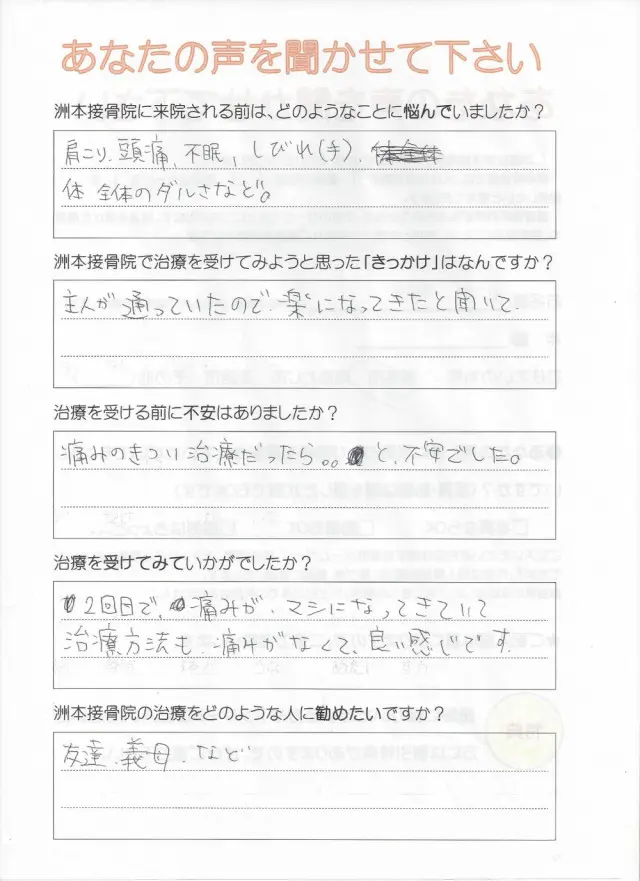 あなたの声を聞かせて下さい
洲本接骨院に来院される前は、どのようなことに悩んでいましたか？
肩こり、頭痛、不眠、しびれ(手)、
体 全体のダルさなど。
洲本接骨院で治療を受けてみようと思った「きっかけ」はなんですか？
主人が通っていたので、楽になってきたと聞いて、
治療を受ける前に不安はありましたか？
痛みのきつい治療だったら。。と、不安でした。
治療を受けてみていかがでしたか？
2回目で、痛みが、マシになってきていて
治療方法も、痛みがなくて、良い感じです。
洲本接骨院の治療をどのような人に勧めたいですか？
友達、義母、など